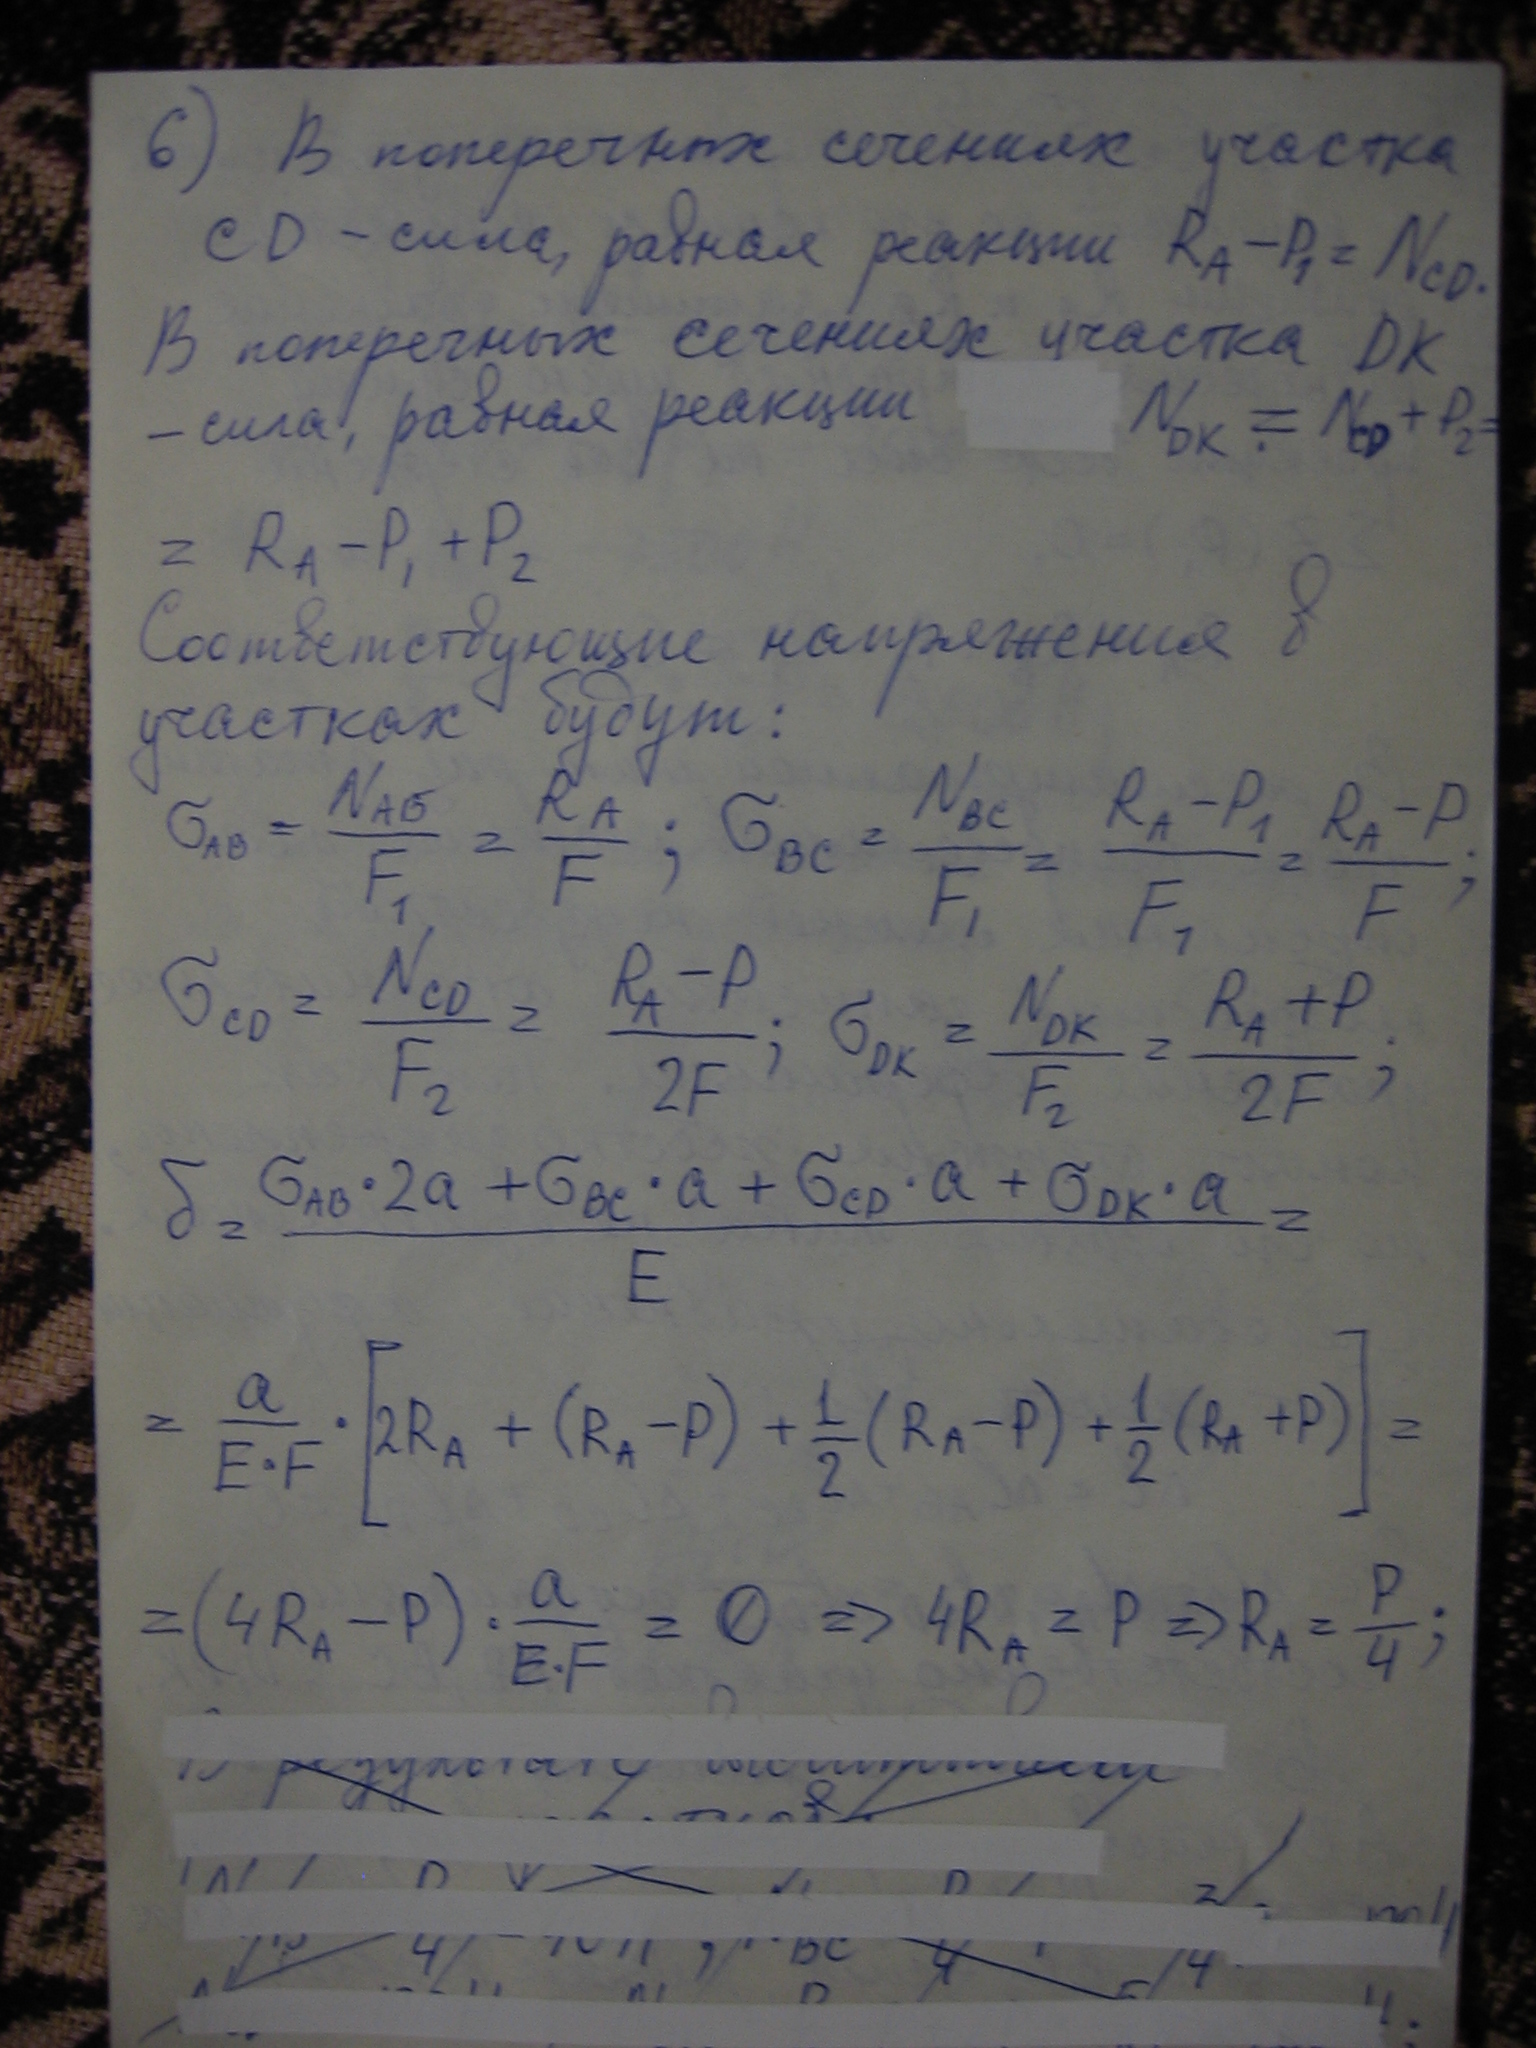 6) В поперечных сечениях участка
CD – сила, равная реакции R_A – P_1 = N_CD.
В поперечных сечениях участка DK
– сила, равная реакции N_DK = N_CD + P_2 =
= R_A – P_1 + P_2
Соответствующие напряжения в
участках будут:
σ_AB = N_АБ/F_1 = R_A/F ; σ_BC = N_BC/F_1 = (R_A – P_1)/F_1 = (R_A – P)/F ;
σ_CD = N_CD/F_2 = (R_A – P)/2F ; σ_DK = N_DK/F_2 = (R_A + P)/2F ;
δ = (σ_AB · 2a + σ_BC · a + σ_CD · a + σ_DK · a)/E =
= a/(E·F) · [2R_A + (R_A – P) + 1/2 (R_A – P) + 1/2 (R_A + P)] =
= (4R_A – P) · a/(E·F) = 0 => 4R_A = P => R_A = P/4 ;
В результате